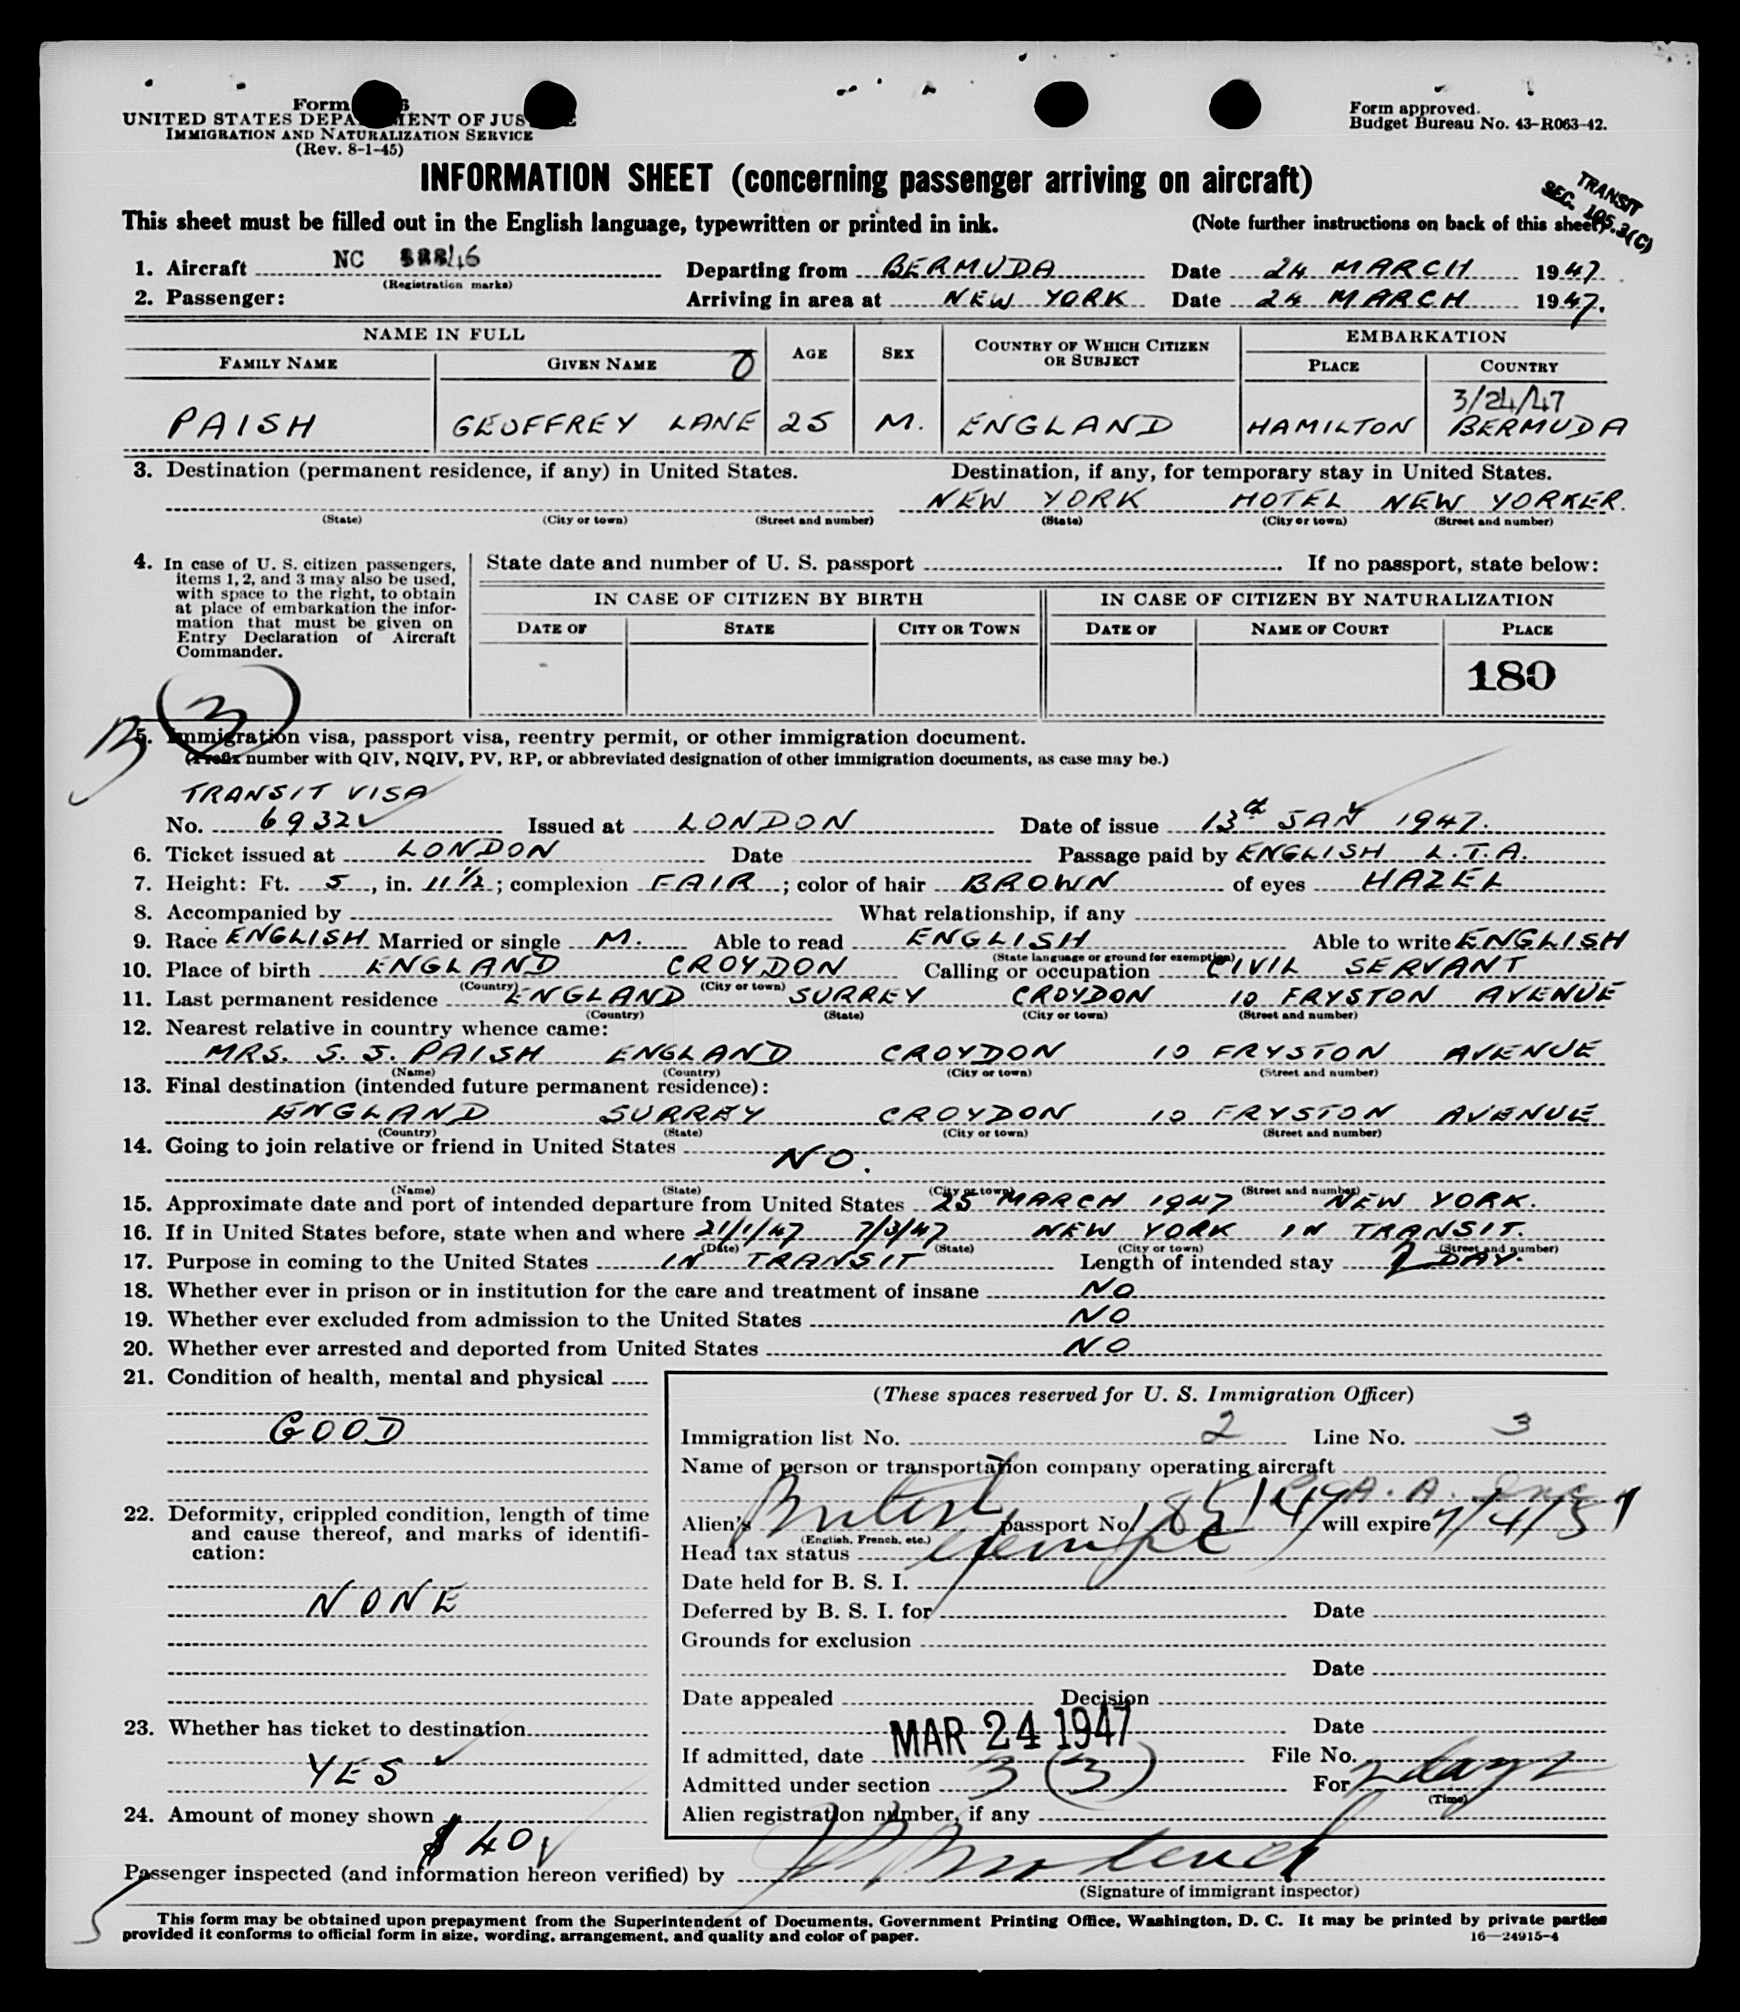 Form
UNITED STATES DEPARTMENT OF JUSTICE
IMMIGRATION AND NATURALIZATION SERVICE
(Rev. 8-1-45)
Form approved.
Budget Bureau No. 43-R063-42.
INFORMATION SHEET (concerning passenger arriving on aircraft)
TRANSIT
SEC. 105.3(C)
This sheet must be filled out in the English language, typewritten or printed in ink. (Note further instructions on back of this sheet)
1. Aircraft NC Departing from BERMUDA Date 24 MARCH 1947.
(Registration marks)
2. Passenger: Arriving in area at NEW YORK Date 24 MARCH 1947.
NAME IN FULL AGE SEX COUNTRY OF WHICH CITIZEN OR SUBJECT EMBARKATION
FAMILY NAME GIVEN NAME PLACE COUNTRY
3/24/47
PAISH GEOFFREY LANE 25 M. ENGLAND HAMILTON BERMUDA
3. Destination (permanent residence, if any) in United States. Destination, if any, for temporary stay in United States.
NEW YORK HOTEL NEW YORKER.
(State) (City or town) (Street and number) (State) (City or town) (Street and number)
4. In case of U. S. citizen passengers, items 1, 2, and 3 may also be used, with space to the right, to obtain at place of embarkation the information that must be given on Entry Declaration of Aircraft Commander.
State date and number of U. S. passport If no passport, state below:
IN CASE OF CITIZEN BY BIRTH IN CASE OF CITIZEN BY NATURALIZATION
DATE OF STATE CITY OR TOWN DATE OF NAME OF COURT PLACE
180
3
5. Immigration visa, passport visa, reentry permit, or other immigration document.
(Prefix number with QIV, NQIV, PV, RP, or abbreviated designation of other immigration documents, as case may be.)
TRANSIT VISA
No. 6932 Issued at LONDON Date of issue 13th JAN 1947.
6. Ticket issued at LONDON Date Passage paid by ENGLISH L.T.A.
7. Height: Ft. 5, in. 11 1/2; complexion FAIR; color of hair BROWN of eyes HAZEL
8. Accompanied by What relationship, if any
9. Race ENGLISH Married or single M. Able to read ENGLISH Able to write ENGLISH
(State language or ground for exemption)
10. Place of birth ENGLAND CROYDON Calling or occupation CIVIL SERVANT
(Country) (City or town)
11. Last permanent residence ENGLAND SURREY CROYDON 10 FRYSTON AVENUE
(Country) (State) (City or town) (Street and number)
12. Nearest relative in country whence came:
MRS. S. J. PAISH ENGLAND CROYDON 10 FRYSTON AVENUE
(Name) (Country) (City or town) (Street and number)
13. Final destination (intended future permanent residence):
ENGLAND SURREY CROYDON 10 FRYSTON AVENUE
(Country) (State) (City or town) (Street and number)
14. Going to join relative or friend in United States NO.
(Name) (State) (City or town) (Street and number)
15. Approximate date and port of intended departure from United States 25 MARCH 1947 NEW YORK.
16. If in United States before, state when and where 21/1/47 7/3/47 NEW YORK IN TRANSIT.
(Date) (State) (City or town) (Street and number)
17. Purpose in coming to the United States IN TRANSIT Length of intended stay DAY.
18. Whether ever in prison or in institution for the care and treatment of insane NO
19. Whether ever excluded from admission to the United States NO
20. Whether ever arrested and deported from United States NO
21. Condition of health, mental and physical
GOOD
22. Deformity, crippled condition, length of time and cause thereof, and marks of identification:
NONE
23. Whether has ticket to destination
YES
24. Amount of money shown
$40
(These spaces reserved for U. S. Immigration Officer)
Immigration list No. 2 Line No. 3
Name of person or transportation company operating aircraft
Alien's British passport No. will expire
(English, French, etc.)
Head tax status Exempt
Date held for B. S. I.
Deferred by B. S. I. for Date
Grounds for exclusion
Date
Date appealed Decision
Date
If admitted, date MAR 24 1947 File No.
Admitted under section 3 (3) For 2 days
(Time)
Alien registration number, if any
Passenger inspected (and information hereon verified) by
(Signature of immigrant inspector)
This form may be obtained upon prepayment from the Superintendent of Documents, Government Printing Office, Washington, D. C. It may be printed by private parties
provided it conforms to official form in size, wording, arrangement, and quality and color of paper. 16—24915-4